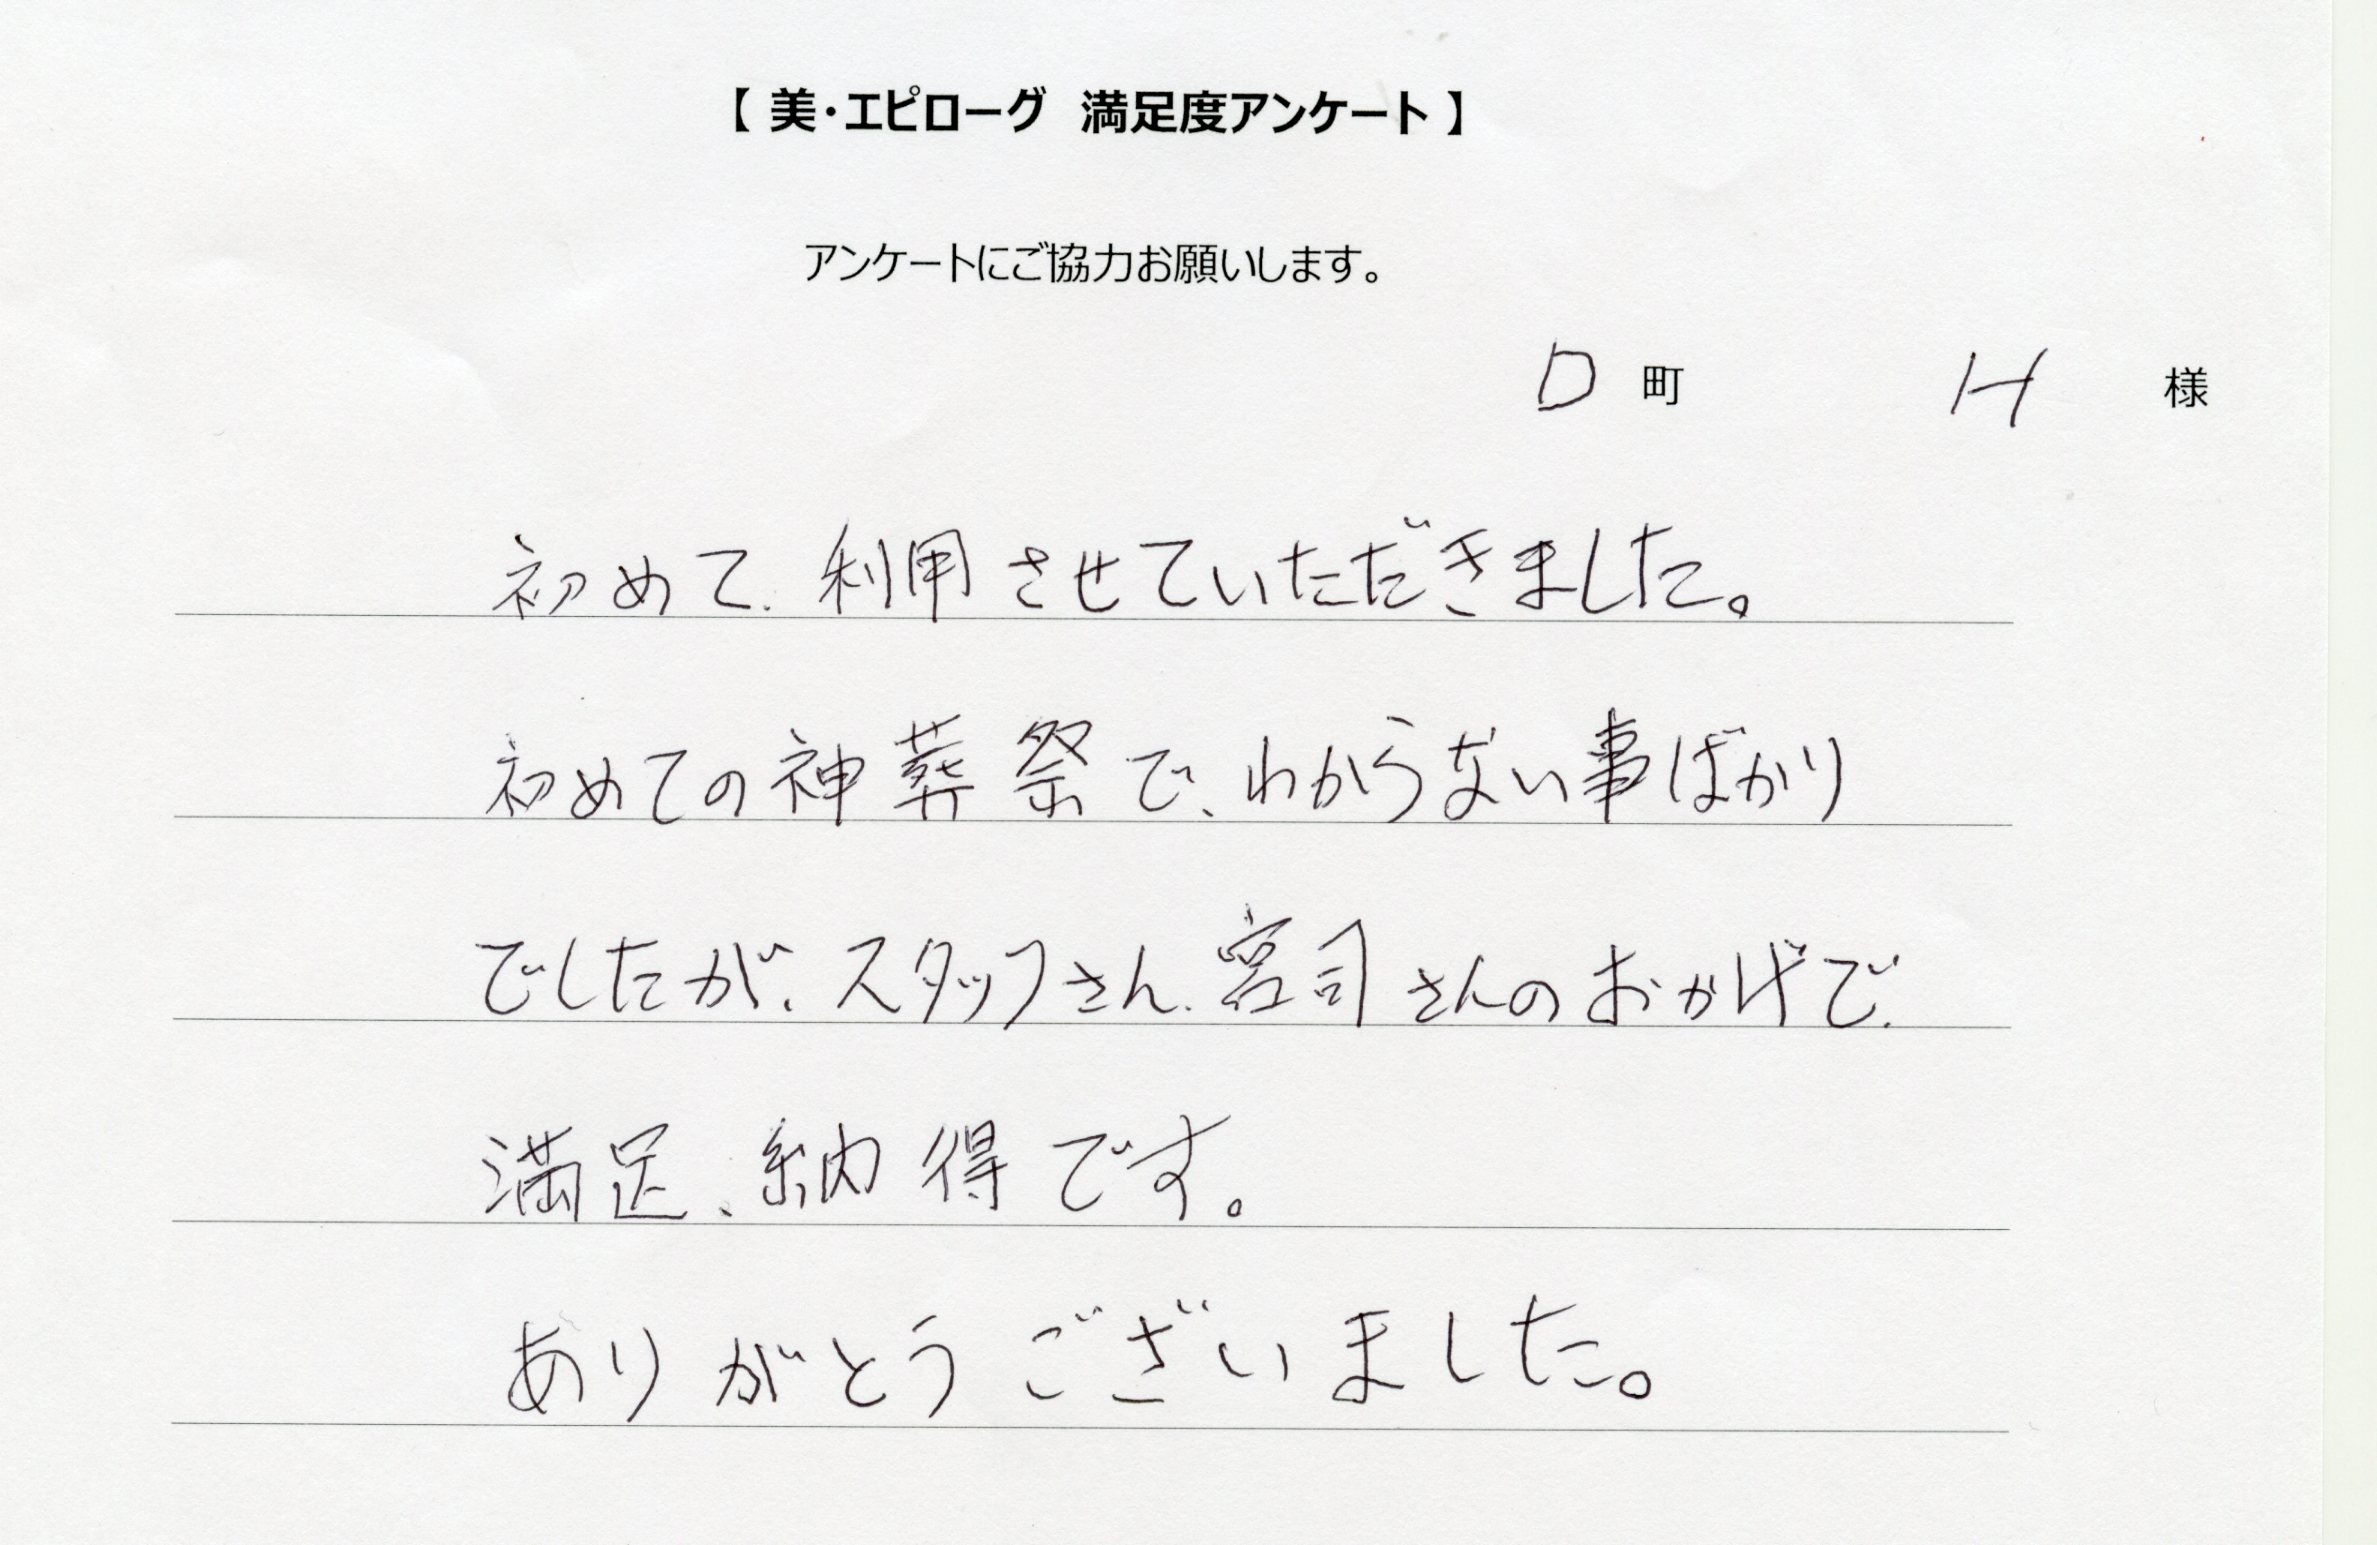 【 美・エピローグ 満足度アンケート 】
アンケートにご協力お願いします。
D 町 H 様
初めて、利用させていただきました。
初めての神葬祭で、わからない事ばかり
でしたが、スタッフさん、宮司さんのおかげで、
満足、納得です。
ありがとうございました。